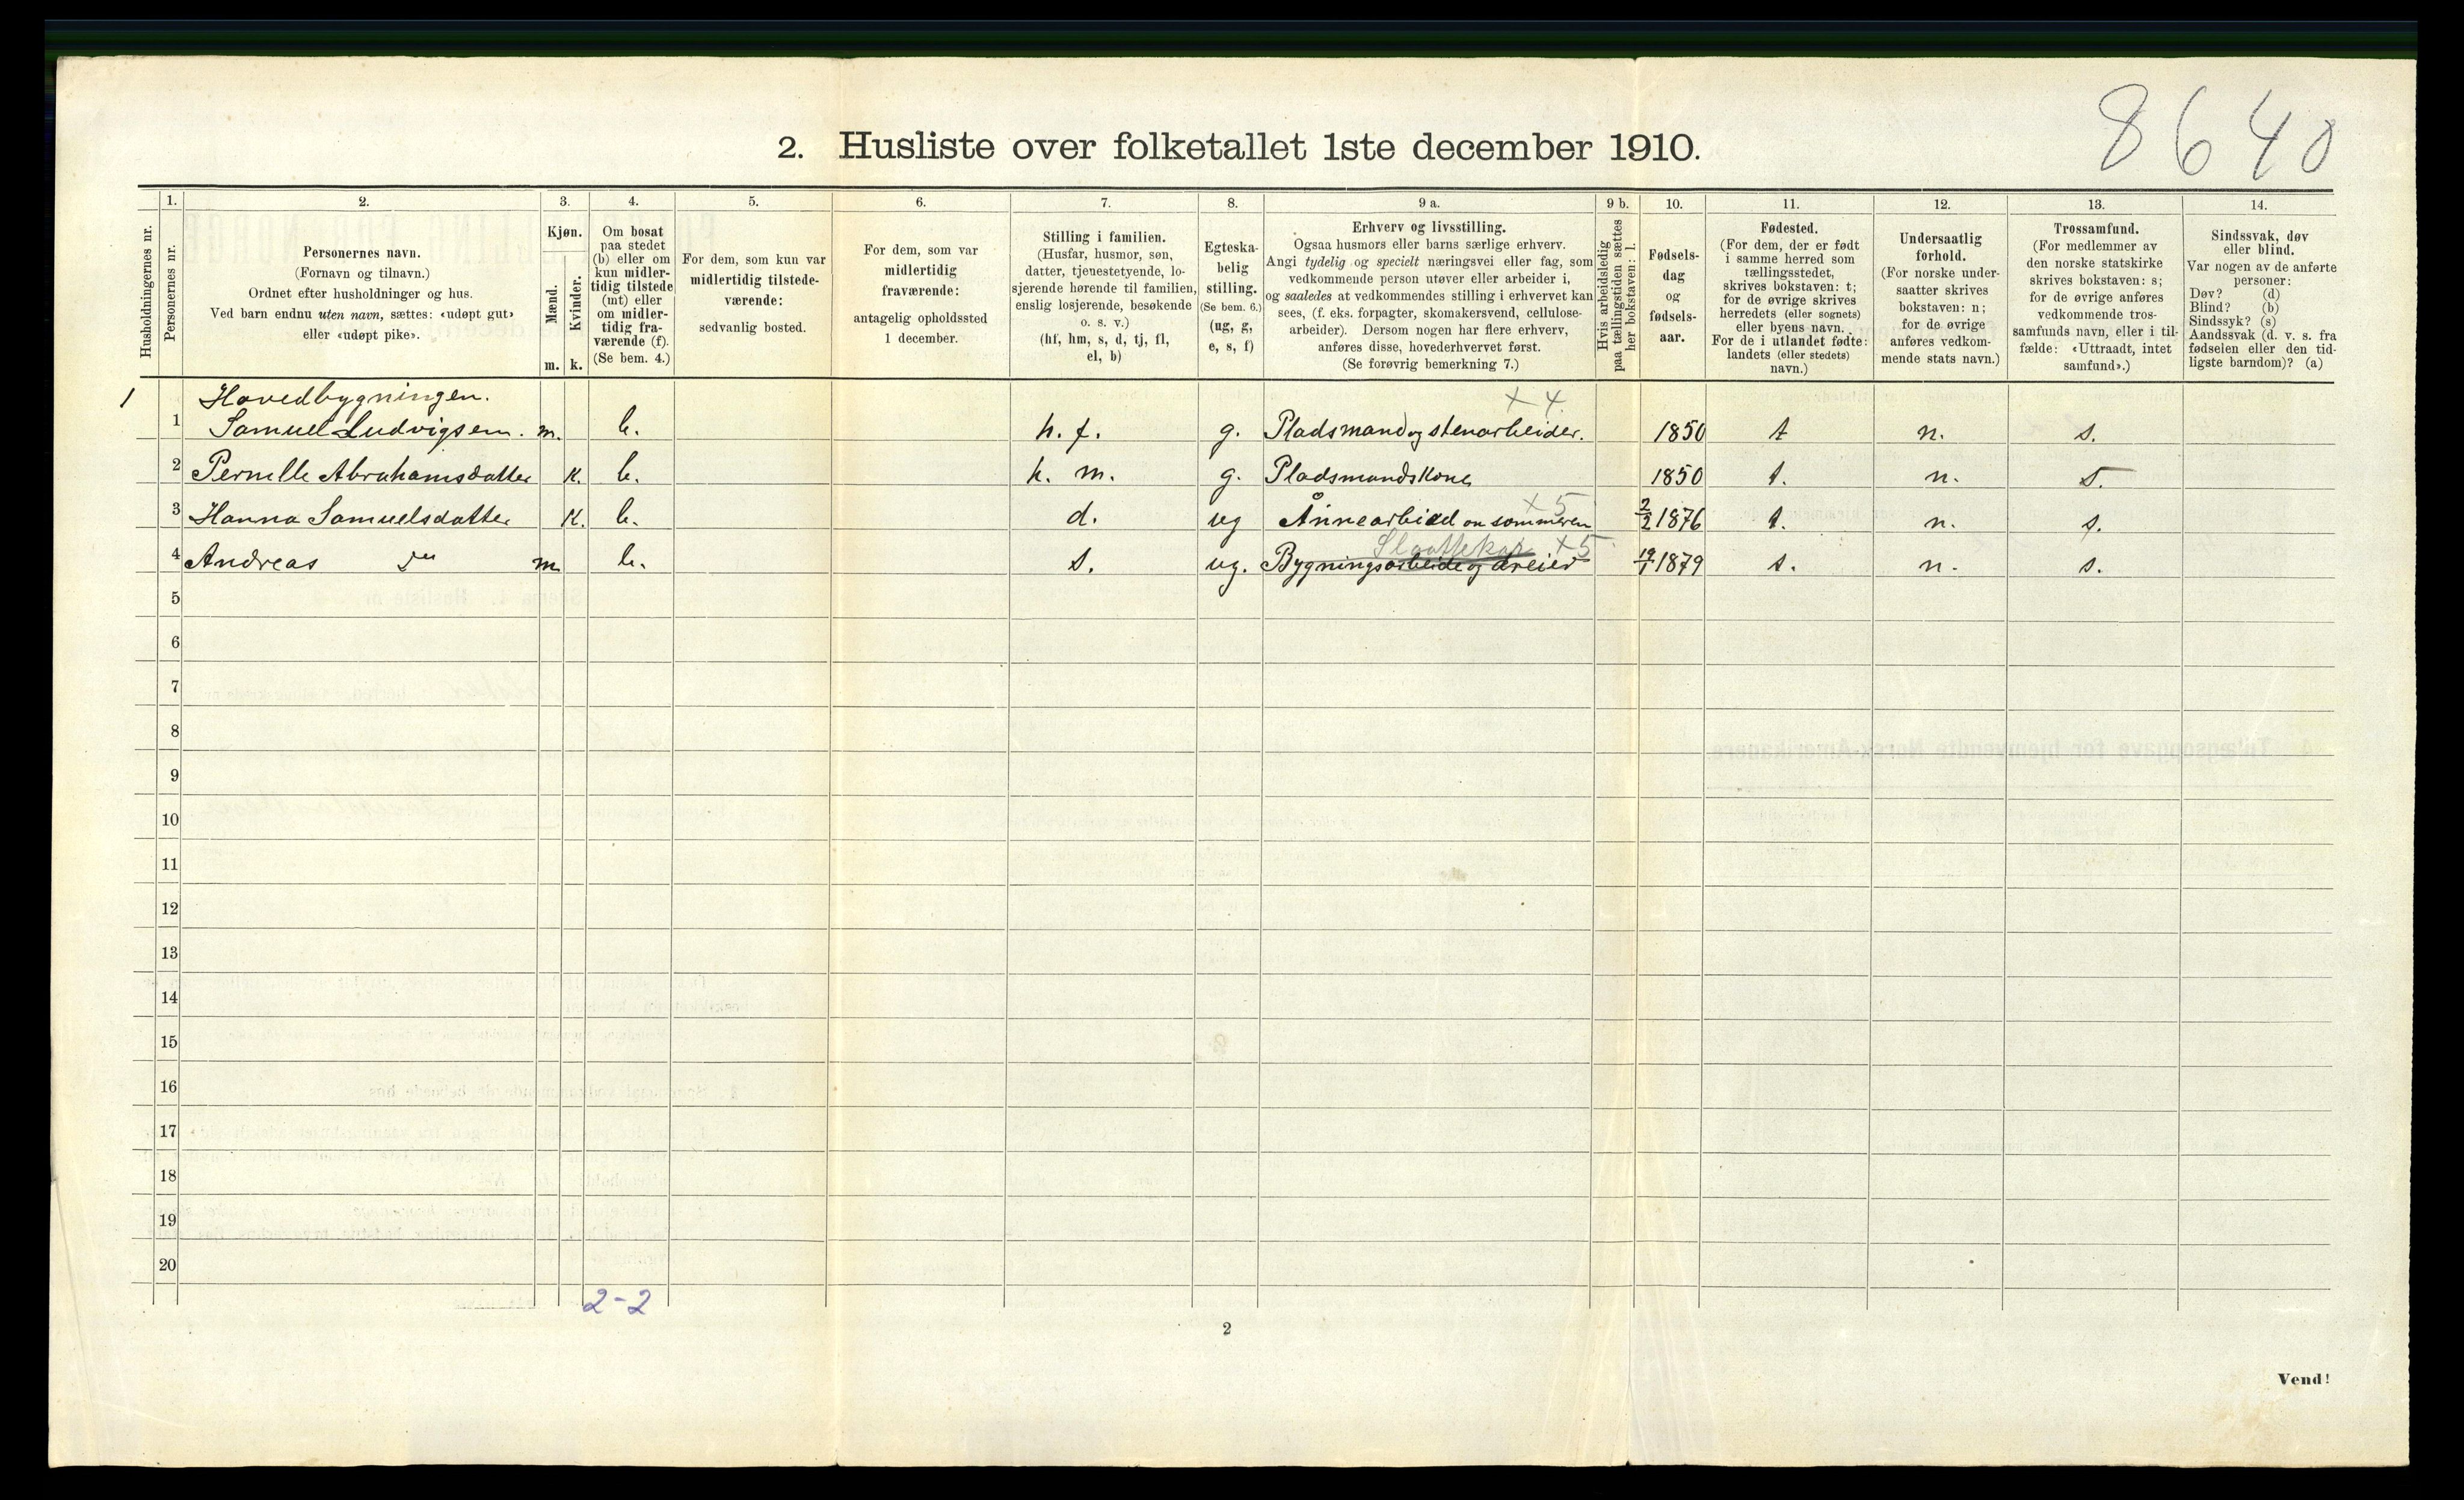 8640
2. Husliste over folketallet 1ste december 1910.
Husholdningernes nr.
1.
Personernes nr.
2.
Personernes navn.
(Fornavn og tilnavn.)
Ordnet efter husholdninger og hus.
Ved barn endnu uten navn, sættes: «udøpt gut»
eller «udøpt pike».
3.
Kjøn.
Mænd.
m.
Kvinder.
k.
4.
Om bosat
paa stedet
(b) eller om
kun midler-
tidig tilstede
(mt) eller
om midler-
tidig fra-
værende (f).
(Se bem. 4.)
5.
For dem, som kun var
midlertidig tilstede-
værende:
sedvanlig bosted.
6.
For dem, som var
midlertidig
fraværende:
antagelig opholdssted
1 december.
7.
Stilling i familien.
(Husfar, husmor, søn,
datter, tjenestetyende, lo-
sjerende hørende til familien,
enslig losjerende, besøkende
o. s. v.)
(hf, hm, s, d, tj, fl,
el, b)
8.
Egteska-
belig
stilling.
(Se bem. 6.)
(ug, g,
e, s, f)
9 a.
Erhverv og livsstilling.
Ogsaa husmors eller barns særlige erhverv.
Angi tydelig og specielt næringsvei eller fag, som
vedkommende person utøver eller arbeider i,
og saaledes at vedkommendes stilling i erhvervet kan
sees, (f. eks. forpagter, skomakersvend, cellulose-
arbeider). Dersom nogen har flere erhverv,
anføres disse, hovederhvervet først.
(Se forøvrig bemerkning 7.)
9 b.
Hvis arbeidsledig
paa tællingstiden sættes
her bokstaven: l.
10.
Fødsels-
dag
og
fødsels-
aar.
11.
Fødested.
(For dem, der er født
i samme herred som
tællingsstedet,
skrives bokstaven: t;
for de øvrige skrives
herredets (eller sognets)
eller byens navn.
For de i utlandet fødte:
landets (eller stedets)
navn.)
12.
Undersaatlig
forhold.
(For norske under-
saatter skrives
bokstaven: n;
for de øvrige
anføres vedkom-
mende stats navn.)
13.
Trossamfund.
(For medlemmer av
den norske statskirke
skrives bokstaven: s;
for de øvrige anføres
vedkommende tros-
samfunds navn, eller i til-
fælde: «Uttraadt, intet
samfund».)
14.
Sindssvak, døv
eller blind.
Var nogen av de anførte
personer:
Døv? (d)
Blind? (b)
Sindssyk? (s)
Aandssvak (d. v. s. fra
fødselen eller den tid-
ligste barndom)? (a)
1 Hovedbygningen. + 4
1 Samuel Ludvigsen. m. b. h. f. g. Pladsmand og stenarbeider. 1850 t n. s.
2 Pernille Abrahamsdatter K. b. h. m. g. Pladsmandskone 1850 t. n. s.
+ 5
3 Hanna Samuelsdatter K. b. d. ug sommeren 2/2 1876 t. n. s.
+ 5
4 Andreas m b. s. ug. Bygningsarbeide og dreier 19/1 1879 t. n. s.
5
6
7
8
9
10
11
12
13
14
15
16
17
18
19
20
2-2
2
Vend!